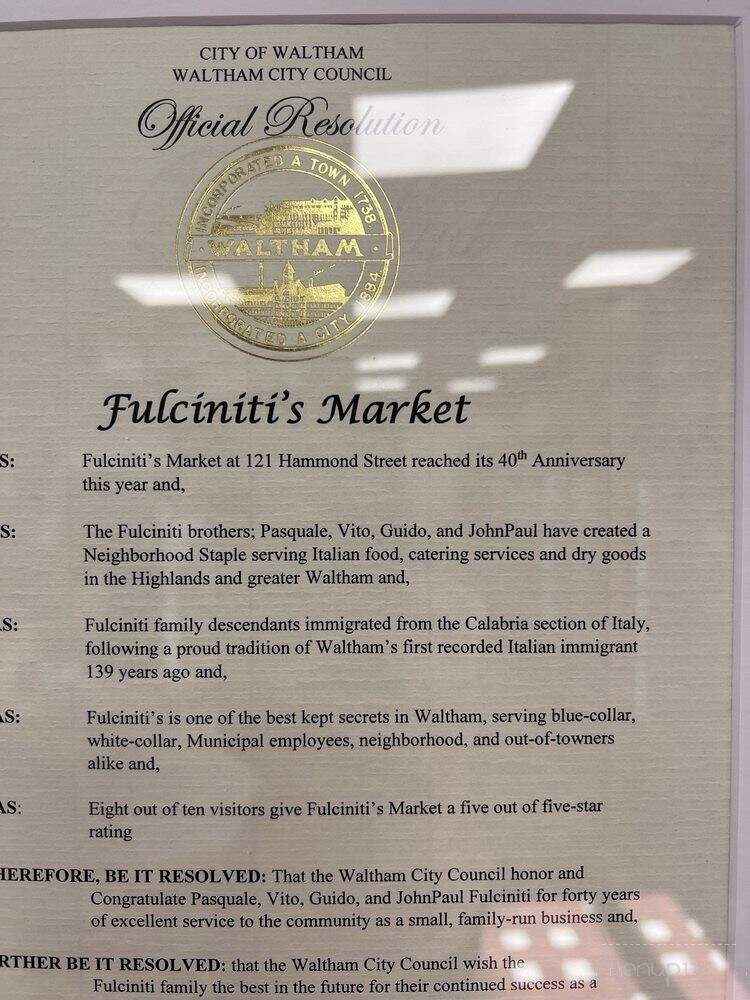 CITY OF WALTHAM
WALTHAM CITY COUNCIL
Official Resolution
INCORPORATED A TOWN 1738.
WALTHAM
INCORPORATED A CITY 1884.
Fulciniti's Market
S: Fulciniti's Market at 121 Hammond Street reached its 40th Anniversary
this year and,
S: The Fulciniti brothers; Pasquale, Vito, Guido, and JohnPaul have created a
Neighborhood Staple serving Italian food, catering services and dry goods
in the Highlands and greater Waltham and,
S: Fulciniti family descendants immigrated from the Calabria section of Italy,
following a proud tradition of Waltham's first recorded Italian immigrant
139 years ago and,
AS: Fulciniti's is one of the best kept secrets in Waltham, serving blue-collar,
white-collar, Municipal employees, neighborhood, and out-of-towners
alike and,
AS: Eight out of ten visitors give Fulciniti's Market a five out of five-star
rating
HEREFORE, BE IT RESOLVED: That the Waltham City Council honor and
Congratulate Pasquale, Vito, Guido, and JohnPaul Fulciniti for forty years
of excellent service to the community as a small, family-run business and,
RTHER BE IT RESOLVED: that the Waltham City Council wish the
Fulciniti family the best in the future for their continued success as a